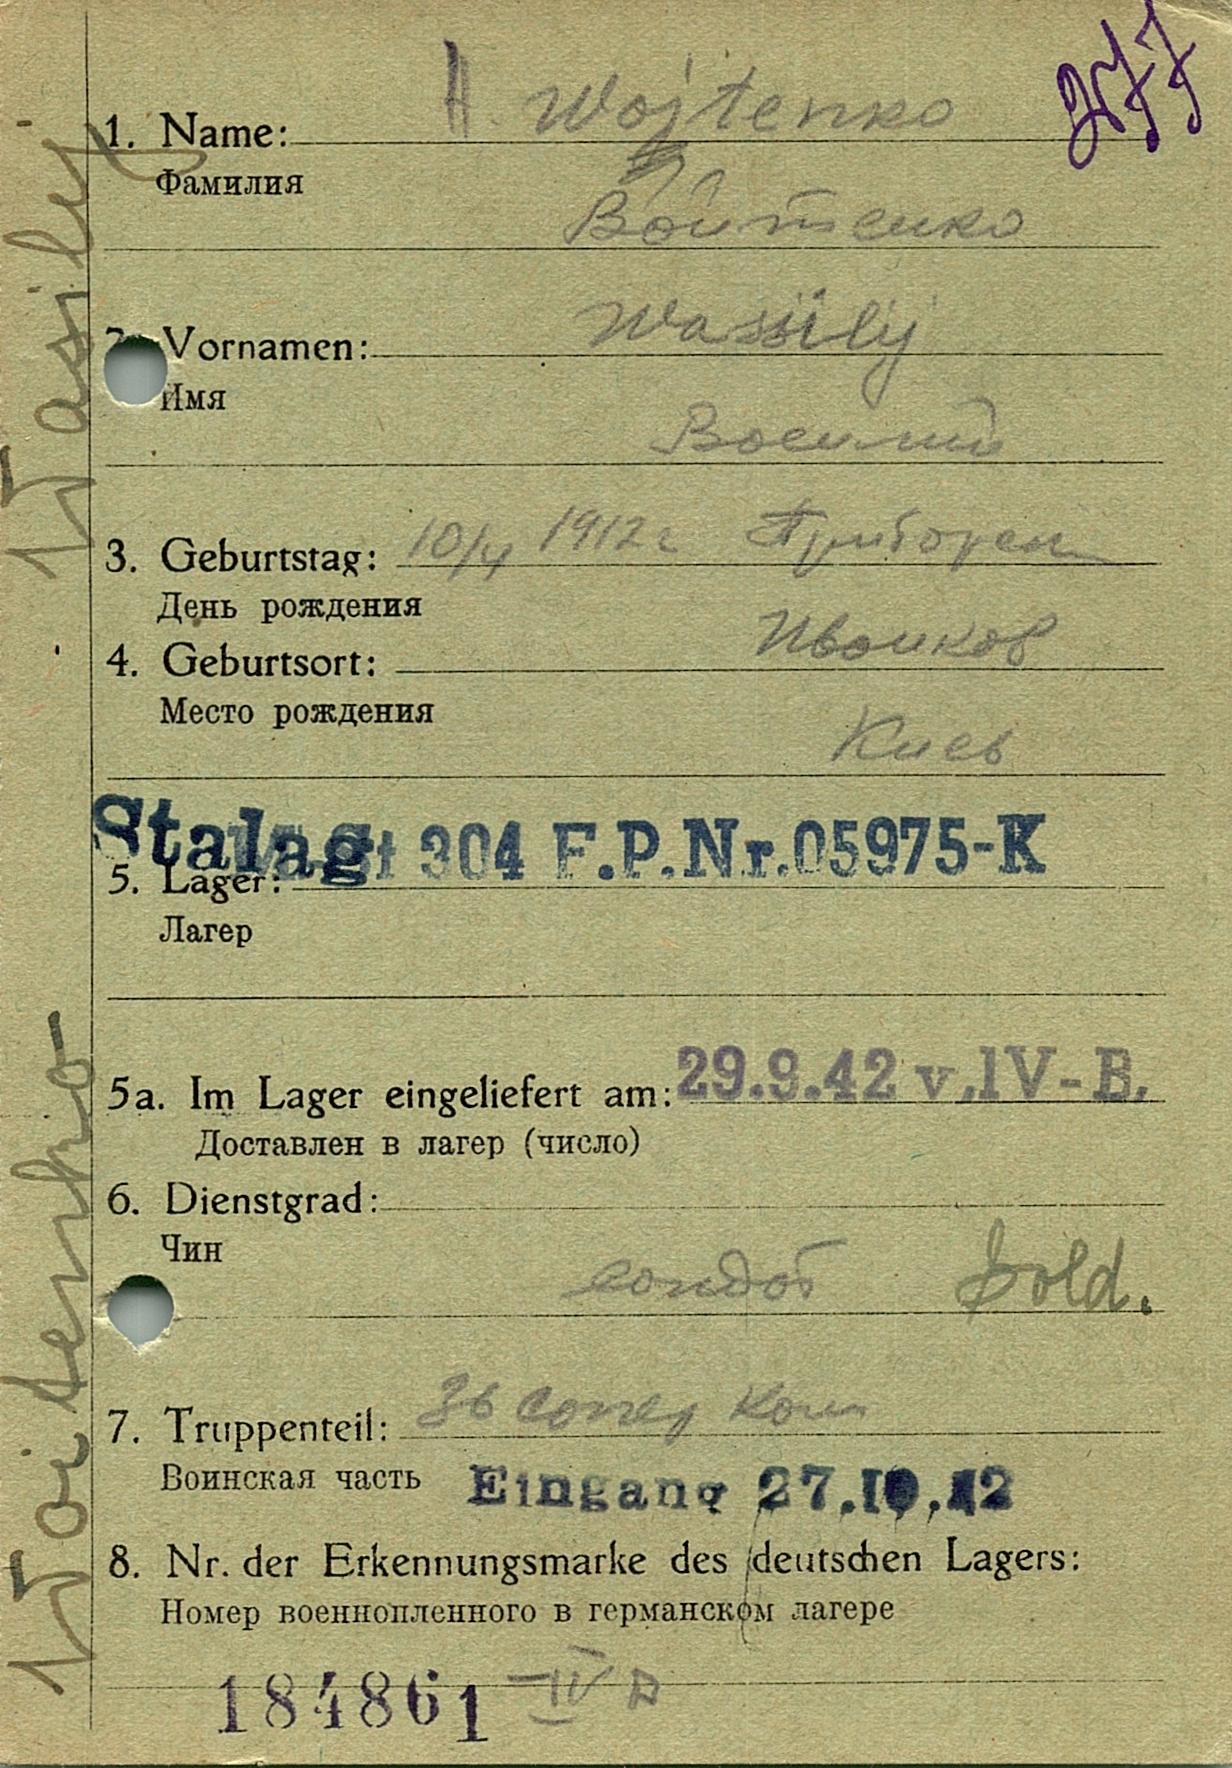 H. Wojtenko
1. Name:
Фамилия
Войтенко
2. Vornamen: Wassilij
Имя
Василий
3. Geburtstag: 10/4 1912г
День рождения
4. Geburtsort: Иванков
Место рождения
Киев
Stalag 304 F.P.Nr.05975-K
5. Lager:
Лагер
5a. Im Lager eingeliefert am: 29.9.42 v. IV-B.
Доставлен в лагер (число)
6. Dienstgrad:
Чин
солдат Sold.
7. Truppenteil: 36 сапер
Воинская часть
Eingang 27.10.42
8. Nr. der Erkennungsmarke des deutschen Lagers:
Номер военнопленного в германском лагере
184861 IV B
Woitenko Wasilij